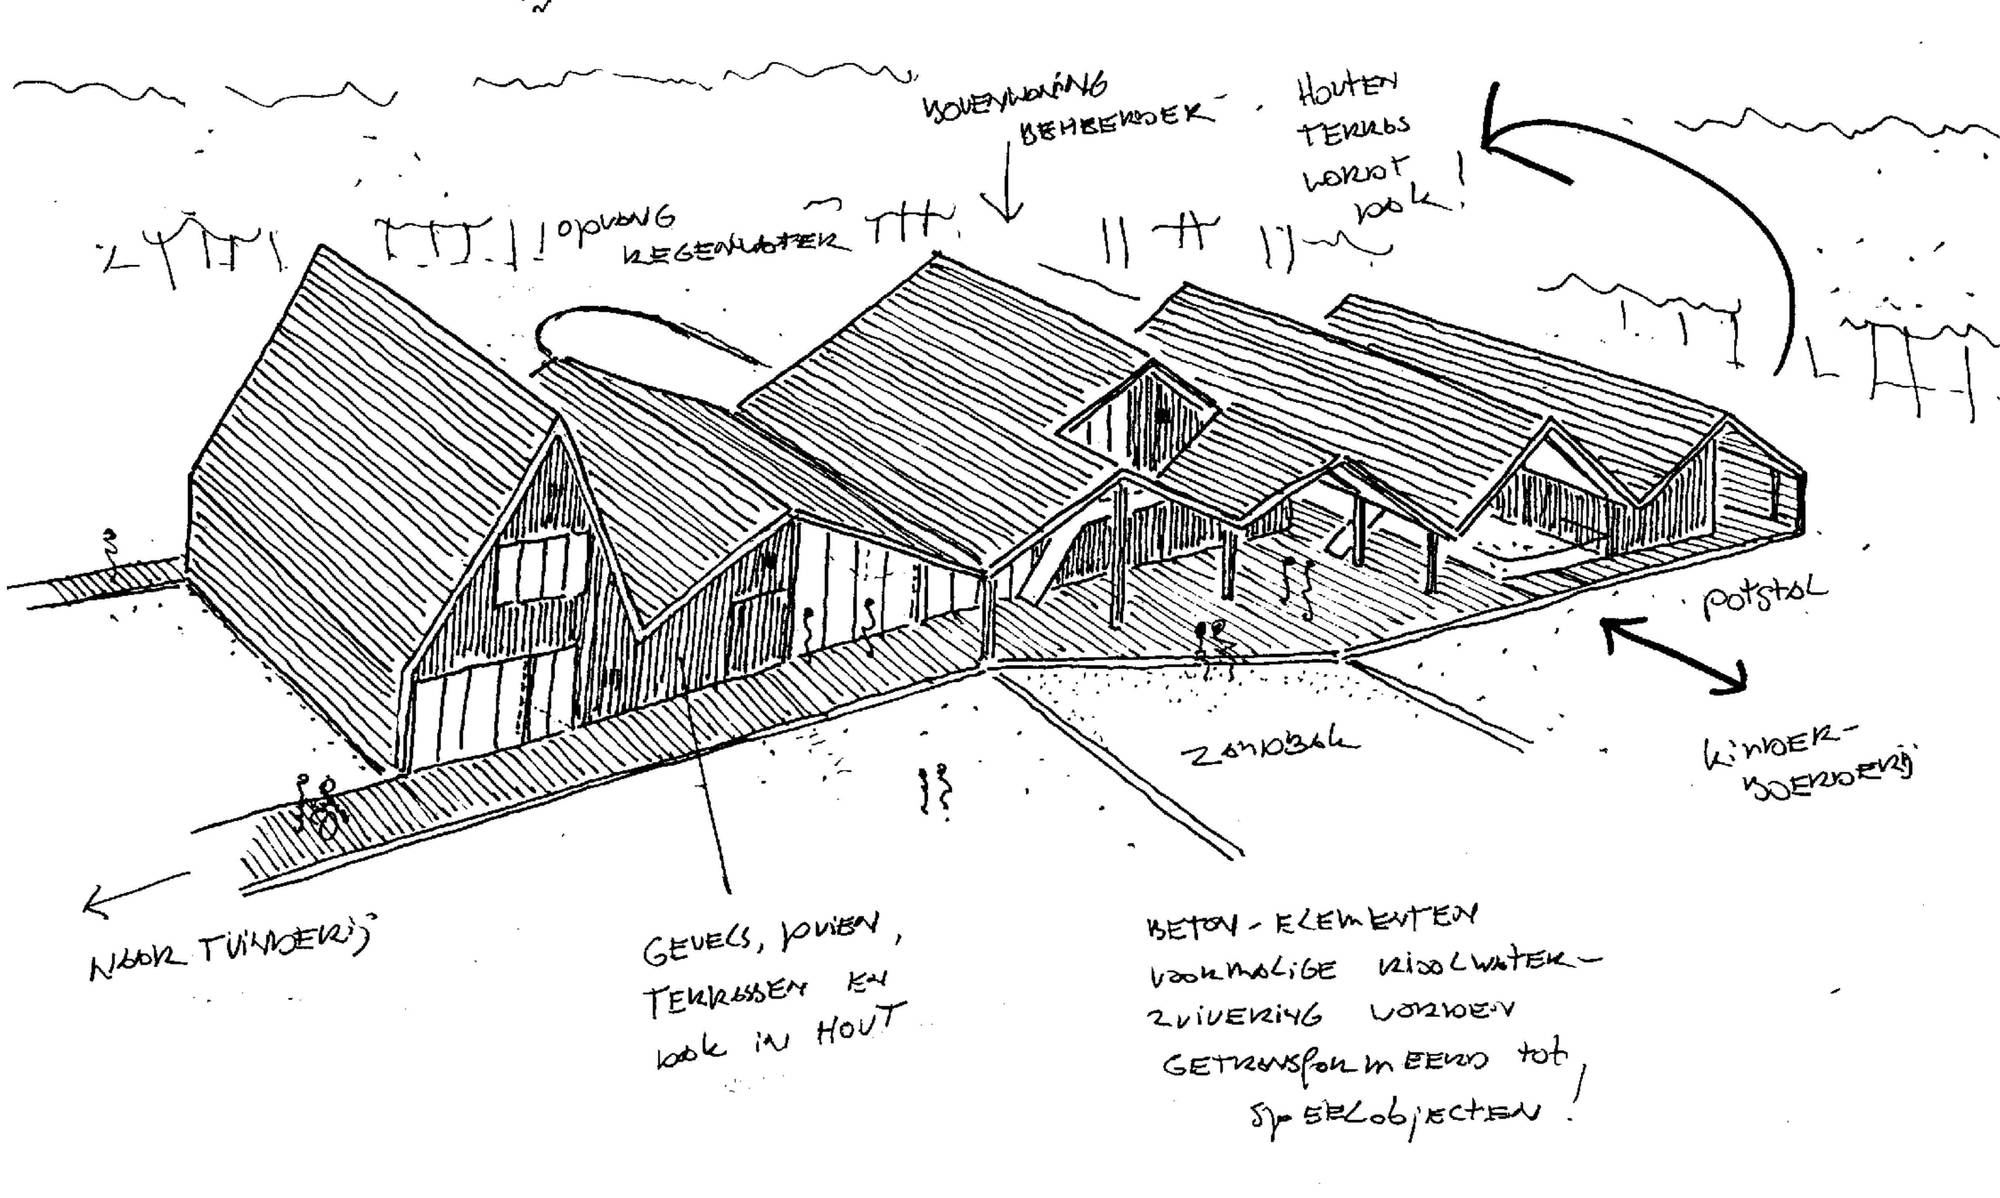 BOVENWONING
BEHEERDER
HOUTEN
TERRAS
WORDT
DAK!
OPVANG
REGENWATER
POTSTAL
KINDER-
BOERDERIJ
ZANDBAK
NAAR TUINDERIJ
GEVELS, PUIEN,
TERRASSEN EN
DAK IN HOUT
BETON-ELEMENTEN
VOORMALIGE RIOOLWATER-
ZUIVERING WORDEN
GETRANSFORMEERD tot
SPEELOBJECTEN!